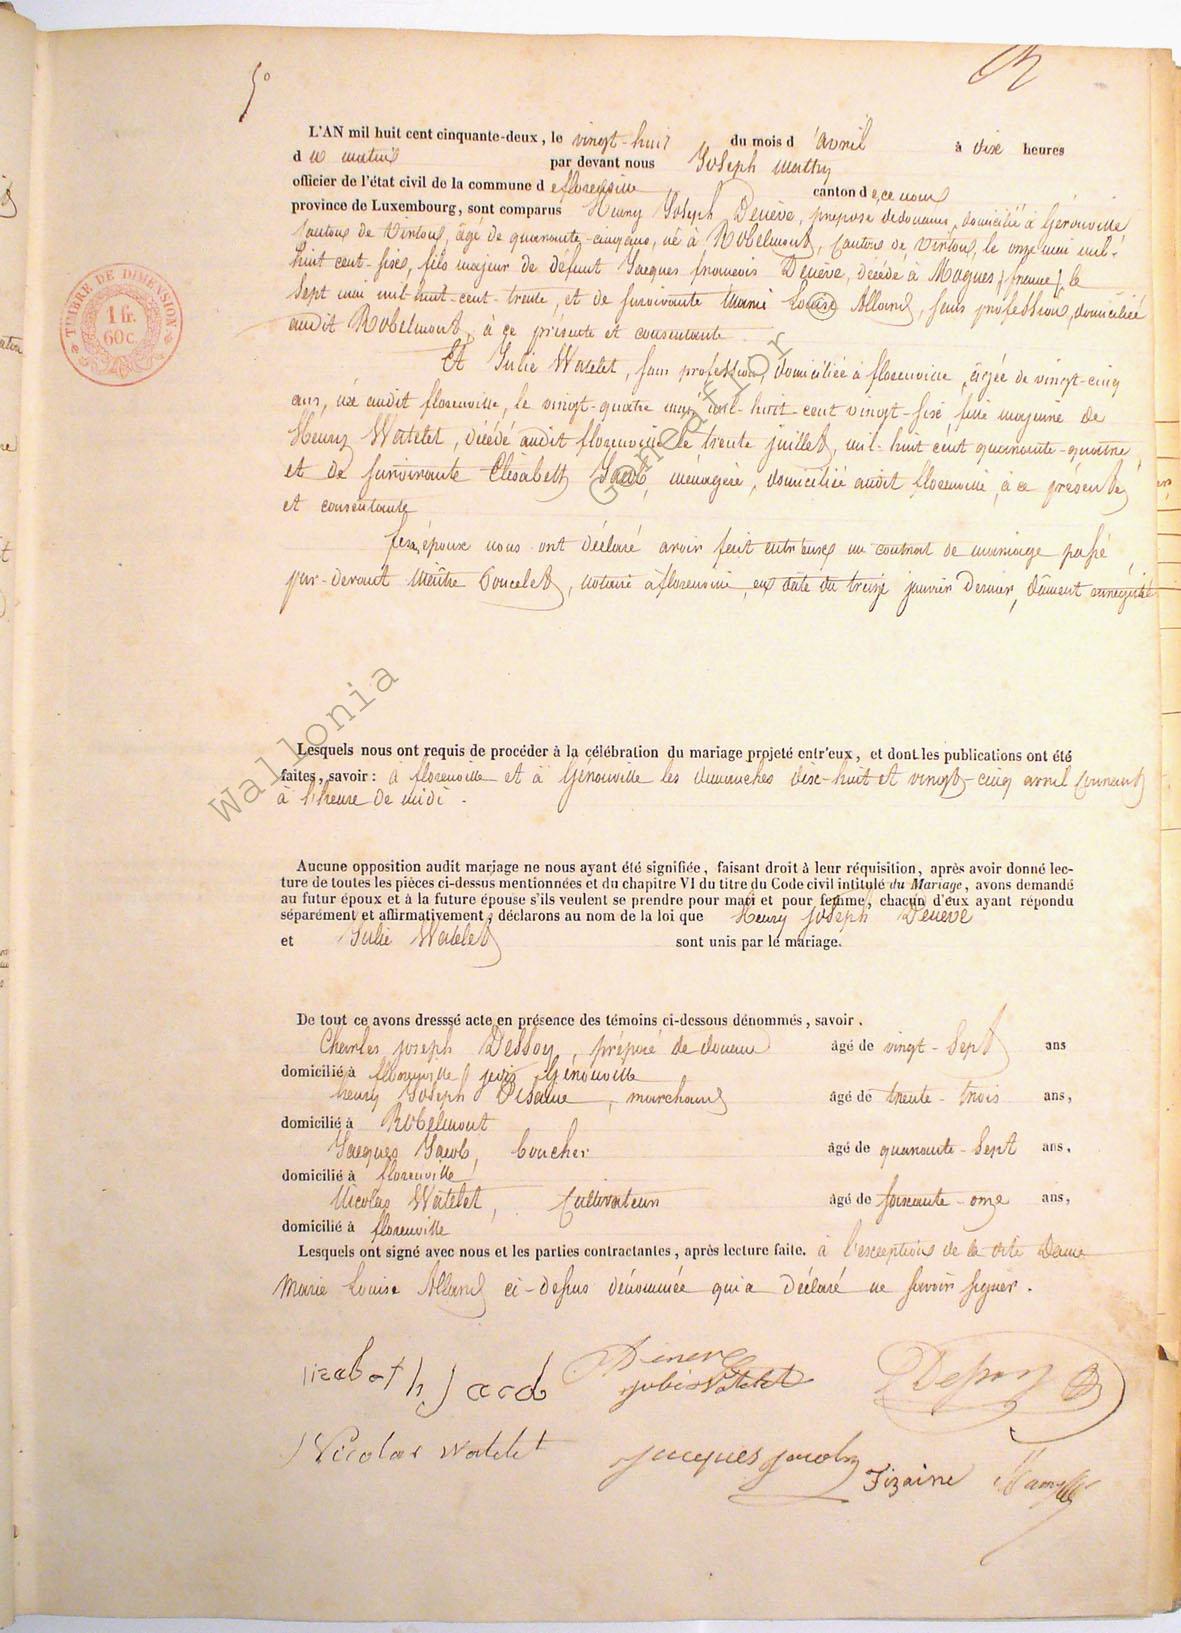 5°
L'AN mil huit cent cinquante-deux, le vingt-huit du mois d'avril à dix heures
d u matin par devant nous Joseph Mathy
officier de l'état civil de la commune d e florenville canton d e, ce nom
province de Luxembourg, sont comparus Henry Joseph Denève, préposé de douane, domicilié à Gérouville
canton de Virton, âgé de quarante-cinq ans, né à Robelmont, canton de Virton, le onze mai mil-
huit cent-six, fils majeur de défunt Jacques françois Denève, décédé à Mogues (france), le
sept mai mil-huit-cent-trente, et de survivante Marie Louise Allard, sans profession, domiciliée
audit Robelmont, à ce présente et consentante.
Et Julie Watelet, sans profession, domiciliée à florenville, âgée de vingt-cinq
ans, née audit florenville, le vingt-quatre mil-huit-cent vingt-six fille majeure de
Henry Watelet, décédé audit florenville le trente juillet, mil-huit cent quarante-quatre,
et de survivante Elisabeth Jacob, ménagère, domiciliée audit florenville, à ce présente
et consentante
époux nous ont déclaré avoir fait entr'eux un contrat de mariage passé
par-devant Maître Poncelet, notaire à florenville, en date du treize janvier dernier, dûment enregistré
Lesquels nous ont requis de procéder à la célébration du mariage projeté entr'eux, et dont les publications ont été
faites, savoir : à florenville et à Gérouville les dimanches dix-huit et vingt-cinq avril courant
à l'heure de midi.
Aucune opposition audit mariage ne nous ayant été signifiée, faisant droit à leur réquisition, après avoir donné lec-
ture de toutes les pièces ci-dessus mentionnées et du chapitre VI du titre du Code civil intitulé du Mariage, avons demandé
au futur époux et à la future épouse s'ils veulent se prendre pour mari et pour femme, chacun d'eux ayant répondu
séparément et affirmativement, déclarons au nom de la loi que Henry Joseph Denève
et Julie Watelet sont unis par le mariage.
De tout ce avons dresssé acte en présence des témoins ci-dessous dénommés, savoir.
Charles joseph Dessoy, préposé de douane âgé de vingt-sept ans
domicilié à Gérouville
henry Joseph marchand âgé de trente-trois ans,
domicilié à Robelmont
Jacques Jacob, boucher âgé de quarante-sept ans,
domicilié à florenville
Nicolas Watelet, Cultivateur âgé de soixante-onze ans,
domicilié à florenville
Lesquels ont signé avec nous et les parties contractantes, après lecture faite. à l'exception de la dite Dame
Marie Louise Allard ci-dessus dénommée qui a déclaré ne savoir signer.
lizabeth Jacob Denève
Julie Watelet Dessoy
Nicolas Watelet jacques jacob Tizaine
TIMBRE DE DIMENSION
1 fr.
60 c.
Wallonia Geneaflor